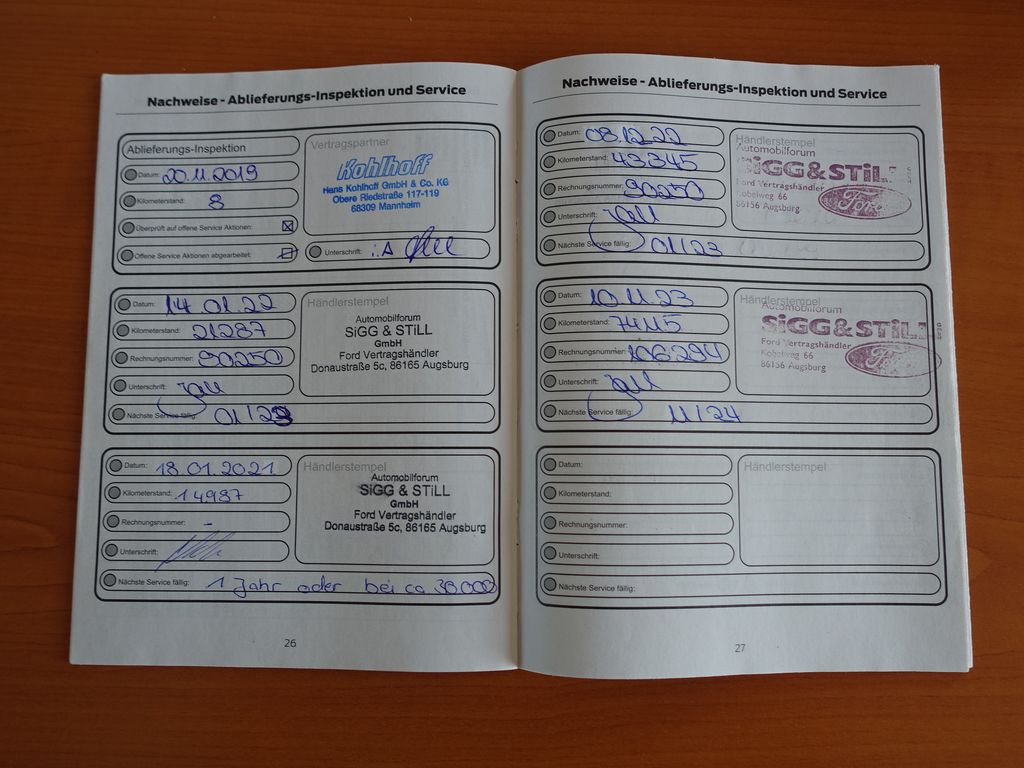 Nachweise - Ablieferungs-Inspektion und Service
Ablieferungs-Inspektion
Datum: 20.11.2019
Kilometerstand: 8
Überprüft auf offene Service Aktionen:
Offene Service Aktionen abgearbeitet:
Vertragspartner
Kohlhoff
Hans Kohlhoff GmbH & Co. KG
Obere Riedstraße 117-119
68309 Mannheim
Unterschrift: i.A
Datum: 14.01.22
Kilometerstand: 21287
Rechnungsnummer: 90250
Unterschrift:
Nächste Service fällig: 01/23
Händlerstempel
Automobilforum
SiGG & STiLL
GmbH
Ford Vertragshändler
Donaustraße 5c, 86165 Augsburg
Datum: 18.01.2021
Kilometerstand: 14987
Rechnungsnummer: -
Unterschrift:
Nächste Service fällig: 1 Jahr oder bei ca 30.000
Händlerstempel
Automobilforum
SiGG & STiLL
GmbH
Ford Vertragshändler
Donaustraße 5c, 86165 Augsburg
26
Nachweise - Ablieferungs-Inspektion und Service
Datum: 08.12.22
Kilometerstand: 43345
Rechnungsnummer: 90250
Unterschrift:
Nächste Service fällig: 01/23
Händlerstempel
Automobilforum
SiGG & STiLL
Ford Vertragshändler
Kobelweg 66
86156 Augsburg
Ford
Datum: 10.11.23
Kilometerstand: 74115
Rechnungsnummer: 106294
Unterschrift:
Nächste Service fällig: 11/24
Händlerstempel
Automobilforum
SiGG & STiLL
Ford Vertragshändler
Kobelweg 66
86156 Augsburg
Ford
Datum:
Kilometerstand:
Rechnungsnummer:
Unterschrift:
Nächste Service fällig:
Händlerstempel
27